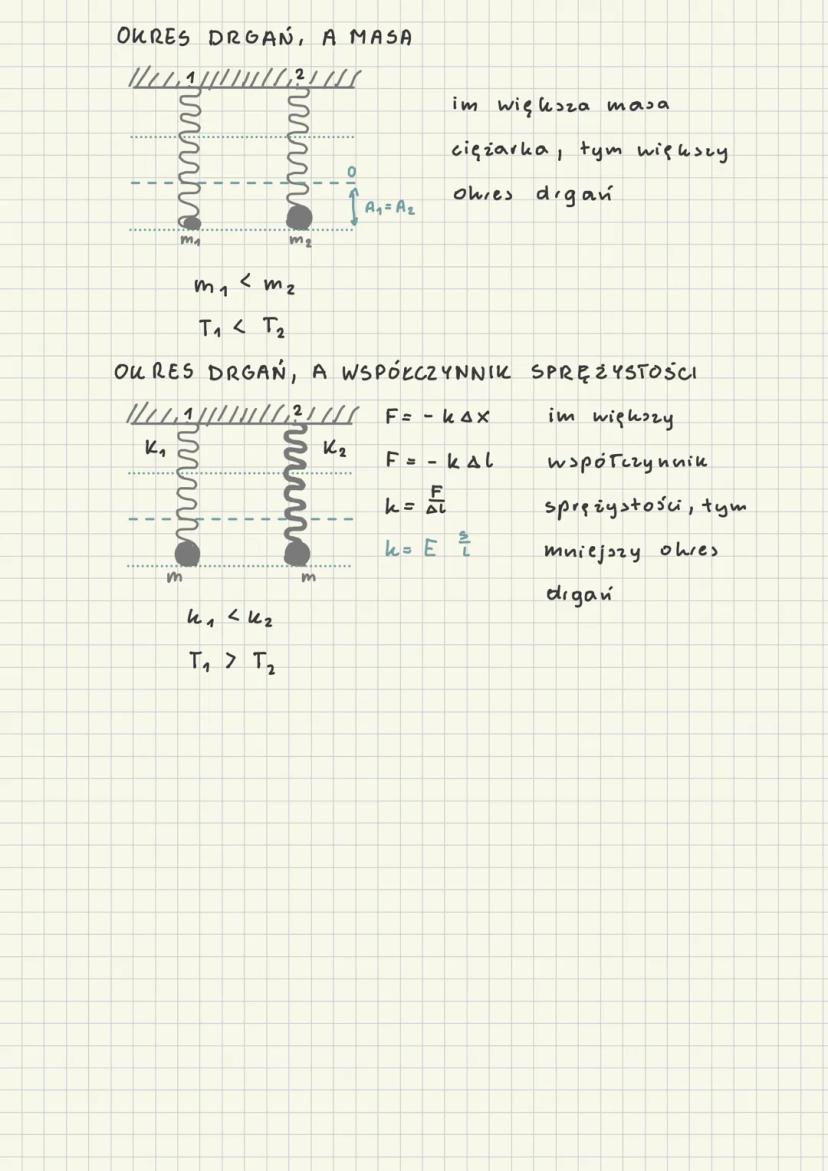 OKRES DRGAŃ, A MASA
1 2
im większa masa
ciężarka, tym większy
okres drgań
0
A₁=A₂
m₁ m₂
m₁ < m₂
T₁ < T₂
OKRES DRGAŃ, A WSPÓŁCZYNNIK SPRĘŻYSTOŚCI
1 2
K₁ K₂
F = - k Δx
F = - k Δl
k = F/Δl
k = E S/L
im większy
współczynnik
sprężystości, tym
mniejszy okres
drgań
m m
k₁ < k₂
T₁ > T₂